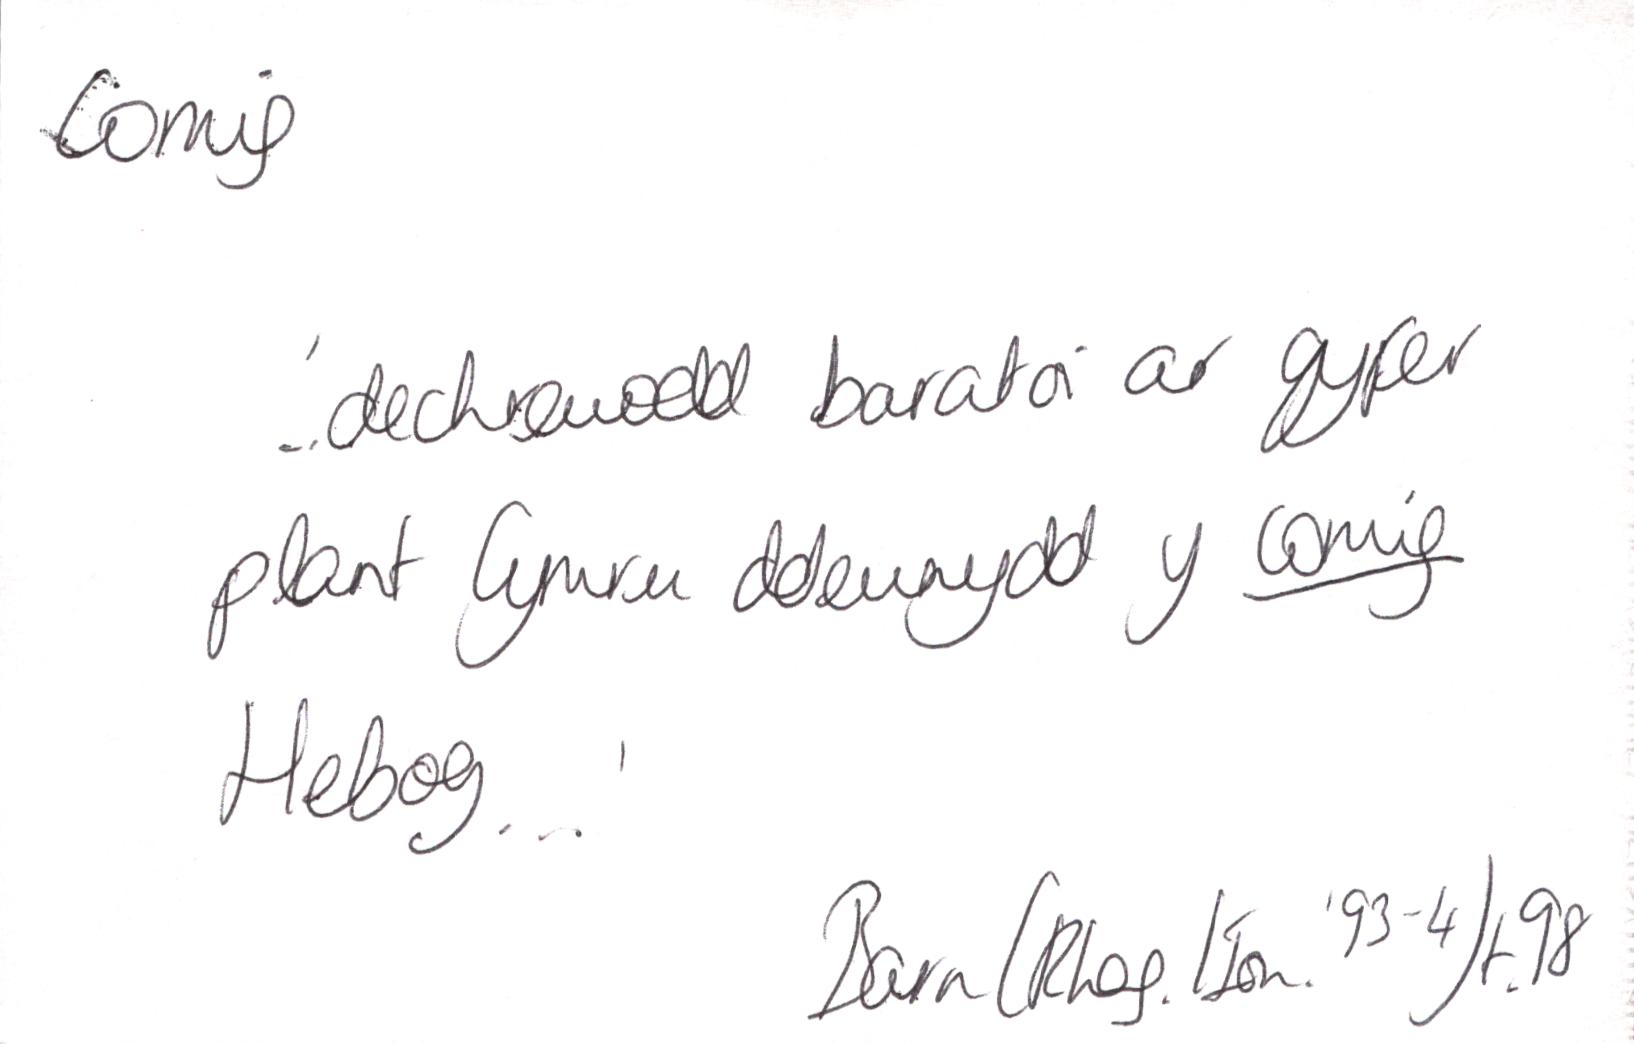 Comig
'...dechreuodd baratoi ar gyfer
plant Cymru ddeunydd y comig
Hebog...'
Barn (Rhag./Ion. '93-4) t.98